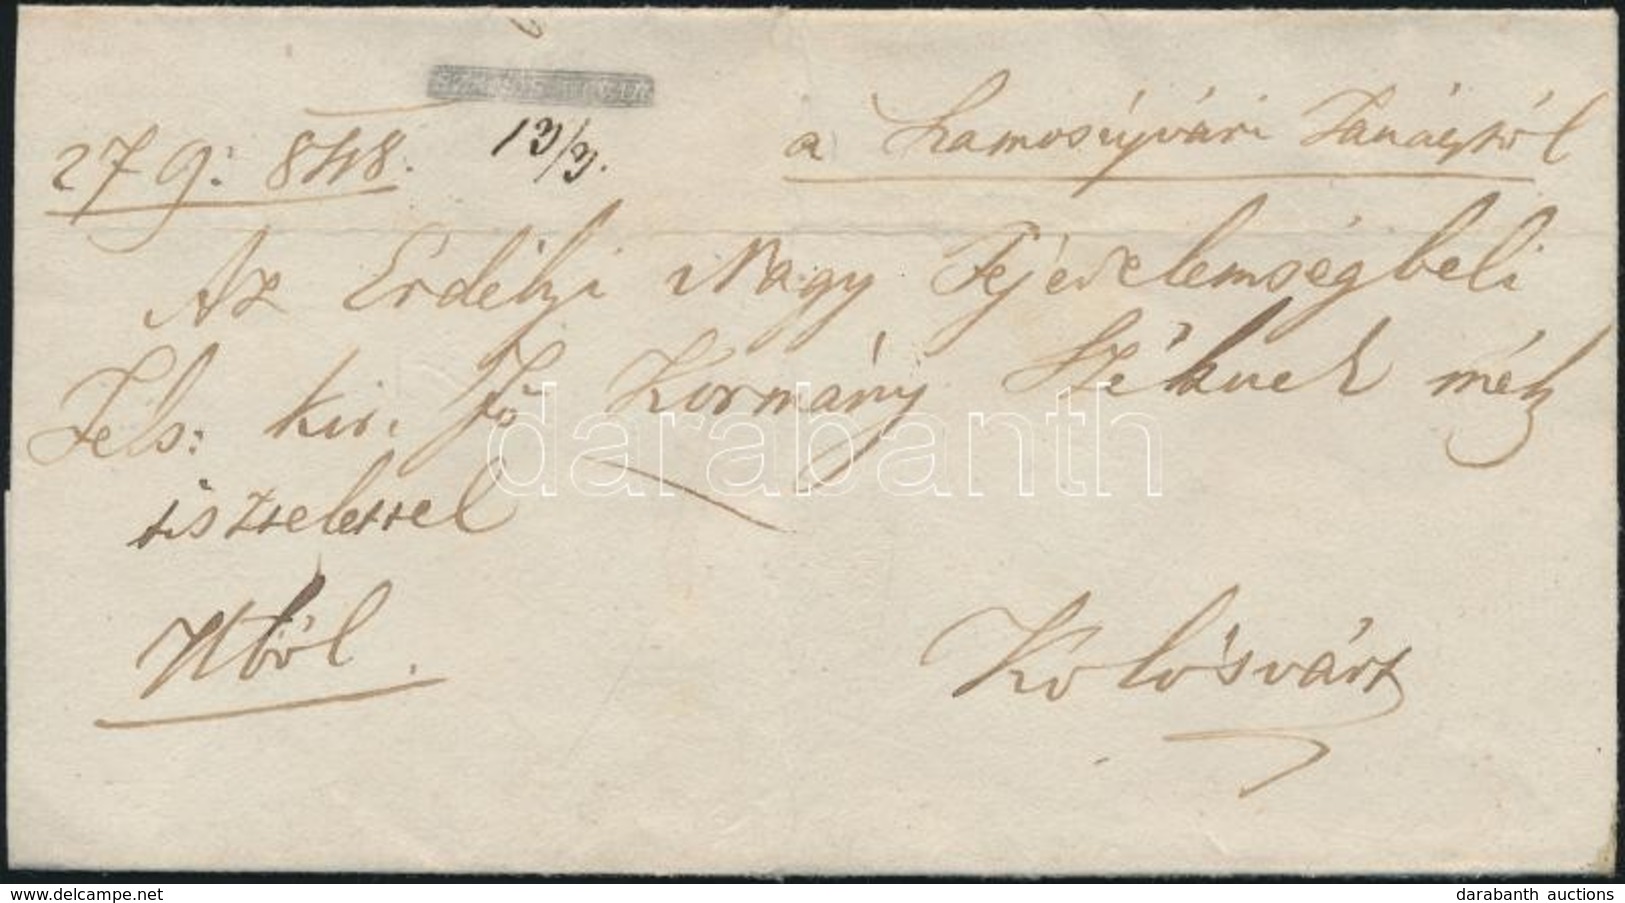 27 9: 848. 13/9. a Szamosújvári Tanátstól
Az Erdélyi Nagy Fejedelemségbeli
Fels: kir. Fő Kormány Széknek mély
tisztelettel
Kolósvárt
darabanth
darabanth auctions